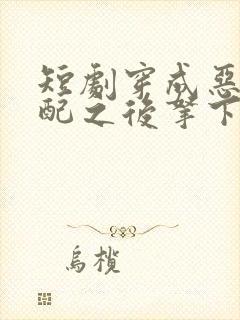 短劇穿成惡
配之後拏下
烏欖